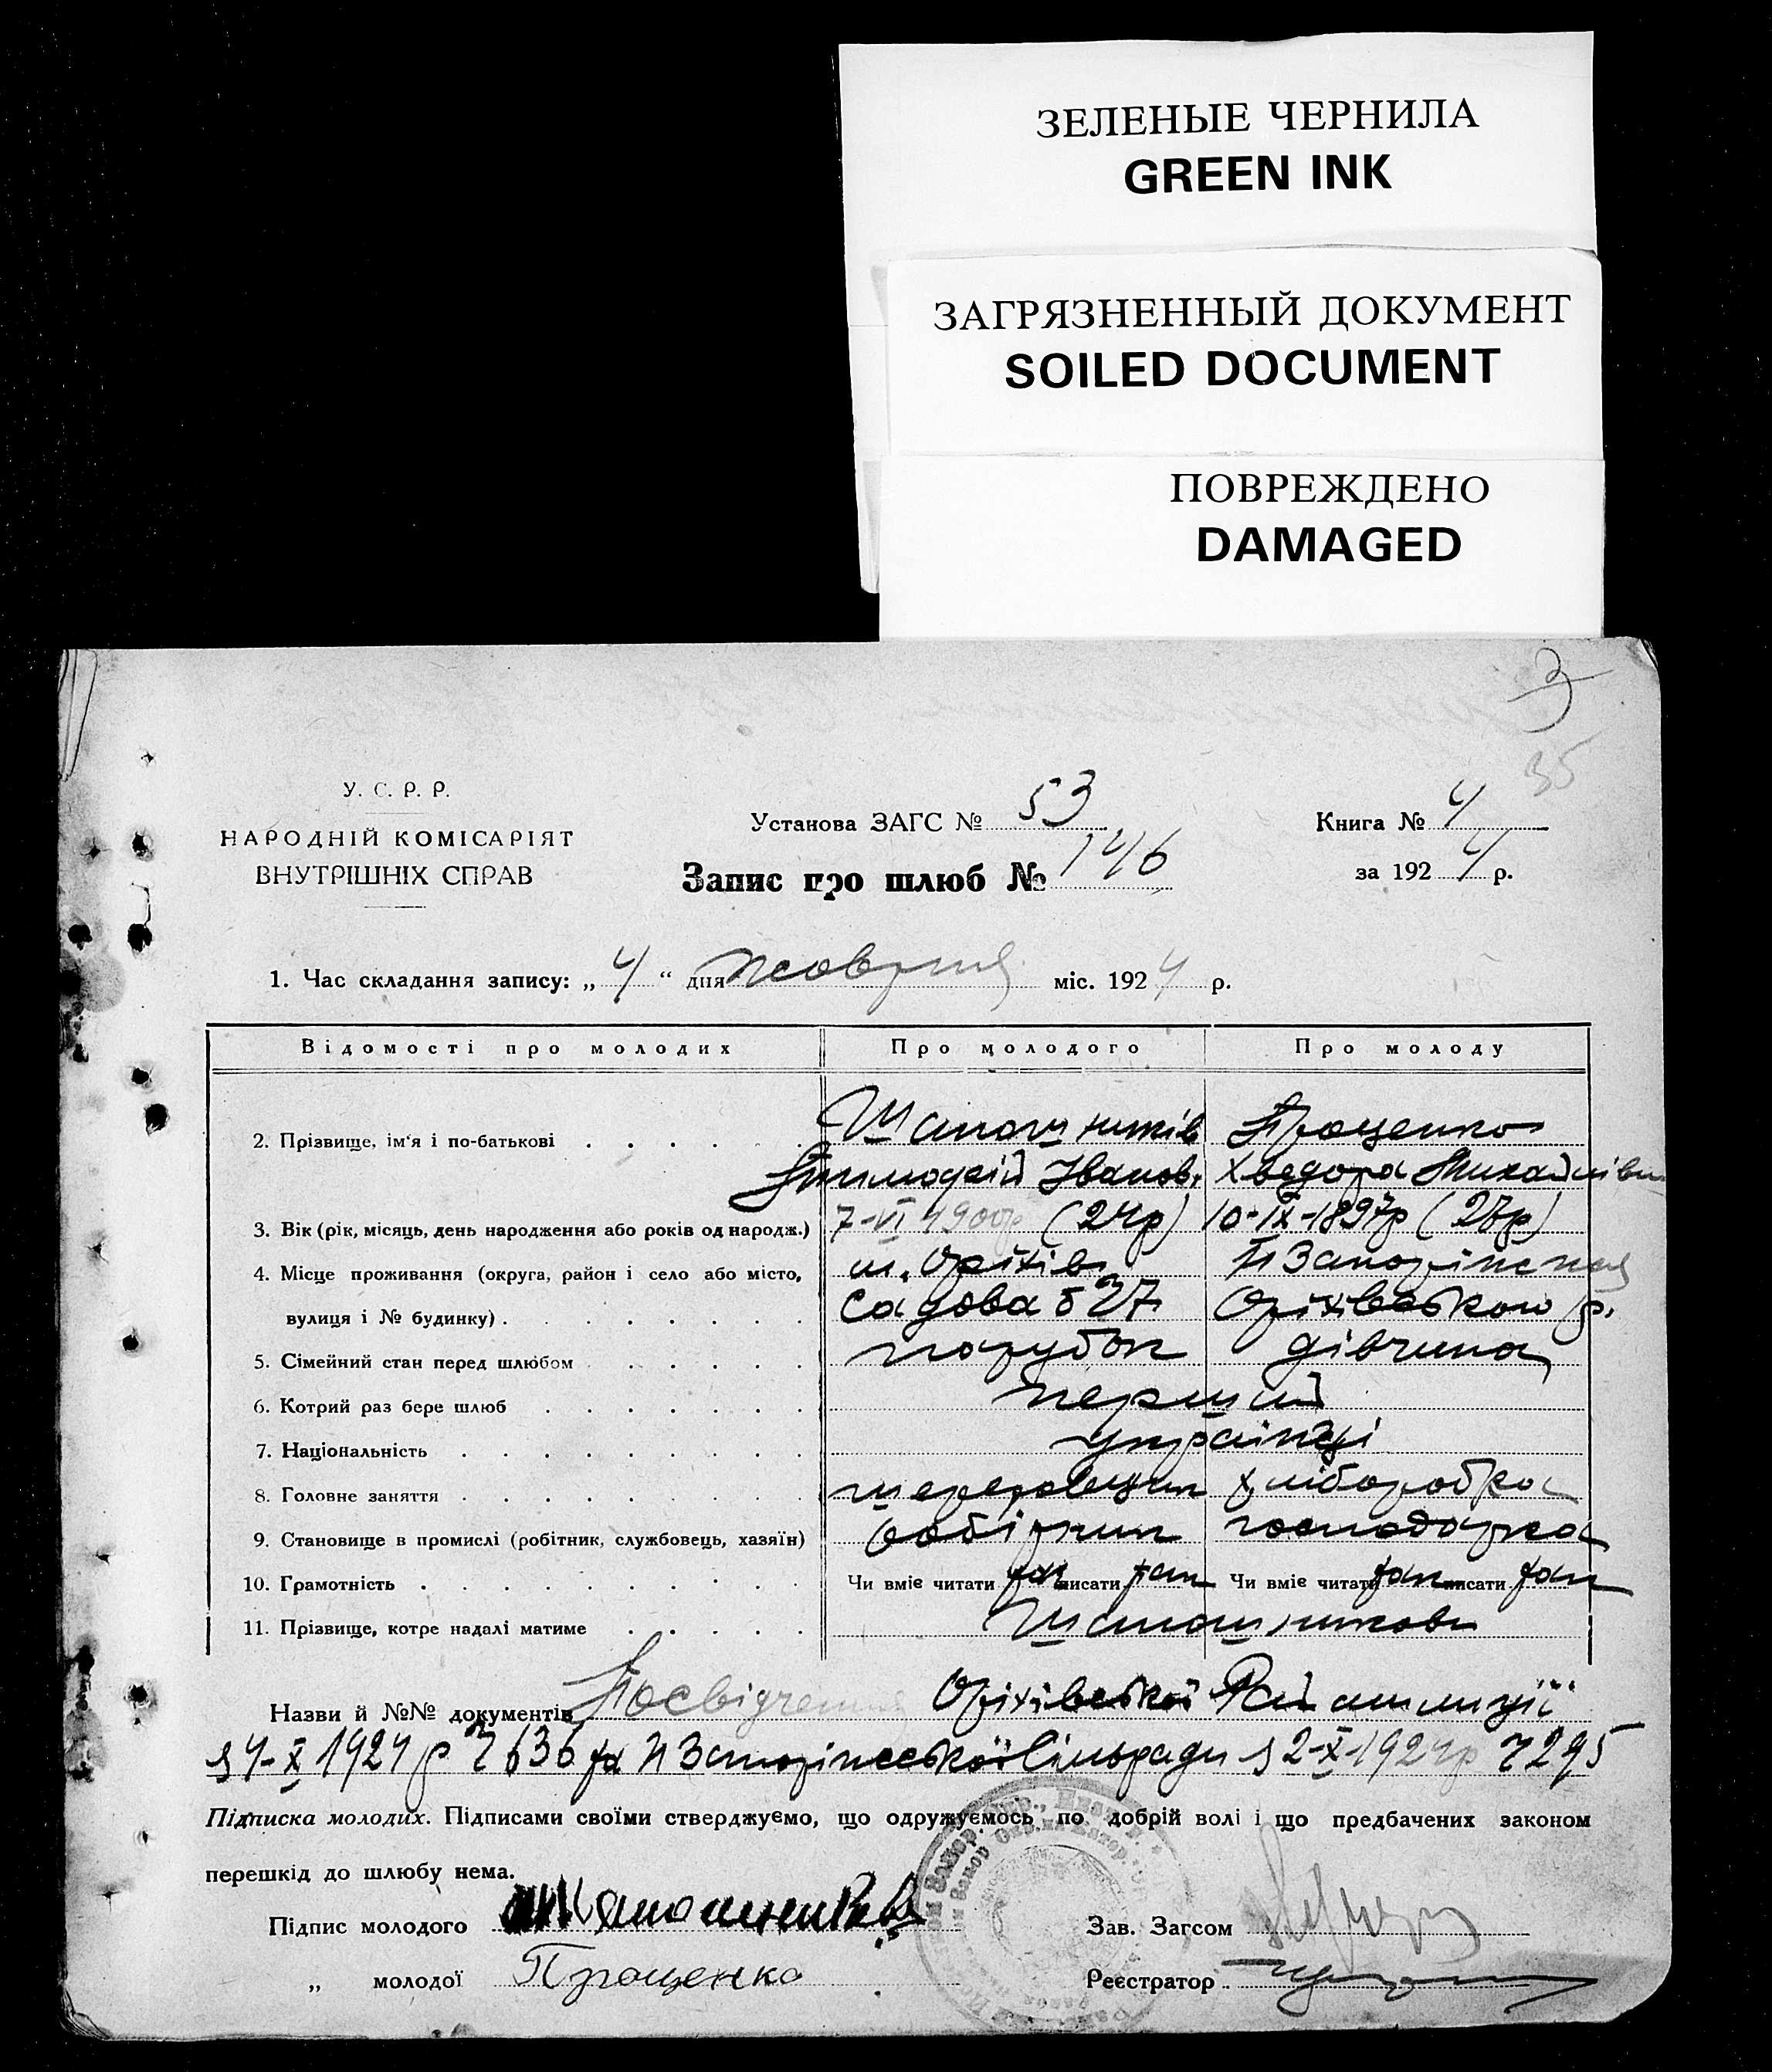 ЗЕЛЕНЫЕ ЧЕРНИЛА
GREEN INK
ЗАГРЯЗНЕННЫЙ ДОКУМЕНТ
SOILED DOCUMENT
ПОВРЕЖДЕНО
DAMAGED
3
35
У. С. Р. Р.
НАРОДНІЙ КОМІСАРІЯТ
ВНУТРІШНІХ СПРАВ
Установа ЗАГС № 53
Запис про шлюб № 146
Книга № 4
за 1924 р.
1. Час складання запису: „4“ дня жовтня міс. 1924 р.
Відомості про молодих Про молодого Про молоду
2. Прізвище, ім'я і по-батькові Шапошников Проценко
Тимофій Іванов. Хведора Михайлівн
3. Вік (рік, місяць, день народження або років од народж.) 7-VI 1900р (24р) 10-IX-1897р (27р)
4. Місце проживання (округа, район і село або місто, м. Оріхів
вулиця і № будинку) Садова б 27 Оріхівського р.
5. Сімейний стан перед шлюбом парубок дівчина
6. Котрий раз бере шлюб перший
7. Національність українці
8. Головне заняття хліборобка
9. Становище в промислі (робітник, службовець, хазяїн) робітник господарка
10. Грамотність Чи вміє читати так писати так Чи вміє читати так писати так
11. Прізвище, котре надалі матиме Шапошников
Назви й №№ документів Посвідчення Оріхівської Рай міліції
з 4-X 1924 р № 636 та Сільради з 2-X-1924р № 295
Підписка молодих. Підписами своїми стверджуємо, що одружуємось по добрій волі і що предбачених законом
перешкід до шлюбу нема.
Підпис молодого
Зав. Загсом
„ молодої Проценко
Реєстратор